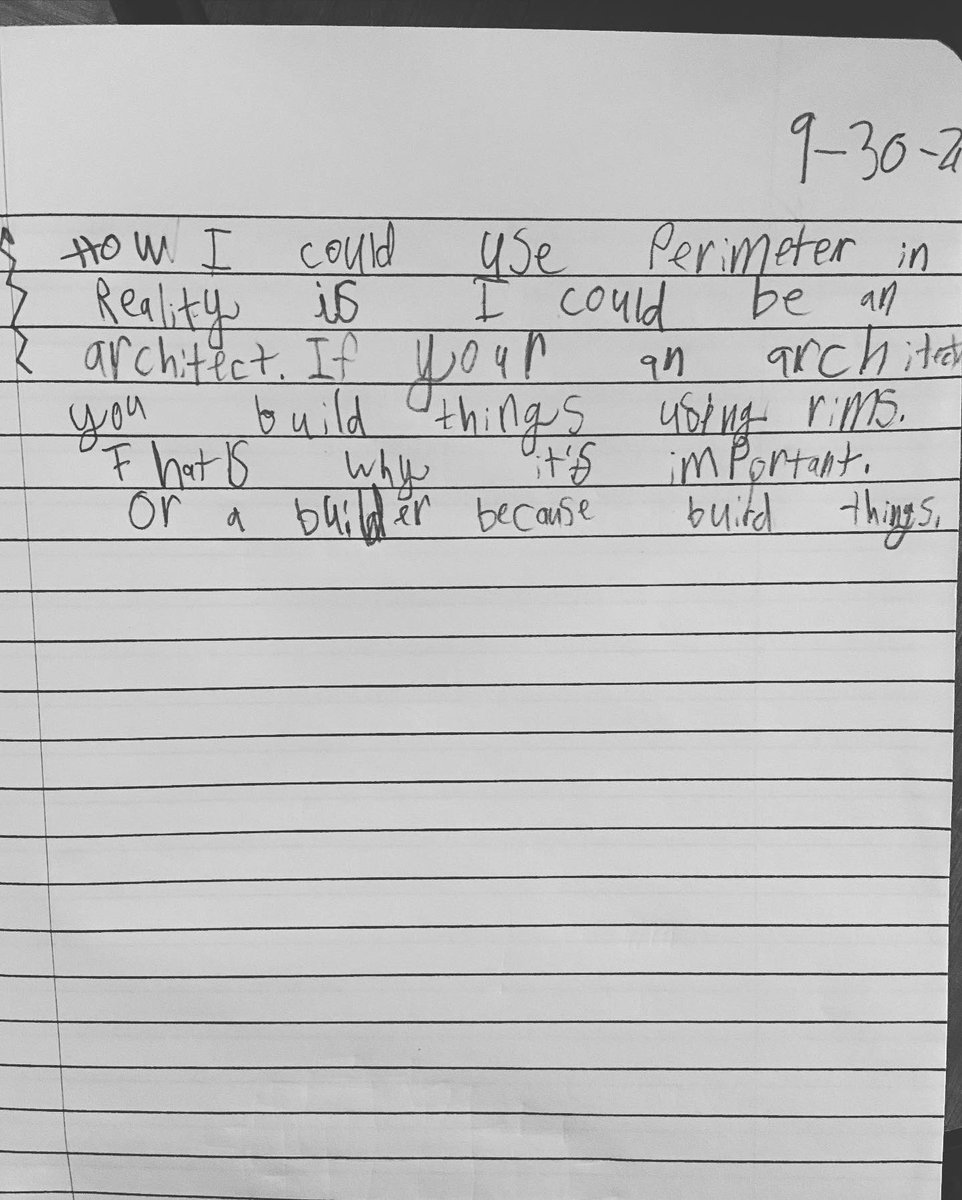 9-30-2
How I could use Perimeter in
Reality is I could be an
architect. If your an architect
you build things using rims.
Thats why it's imPortant.
Or a builder because build things.